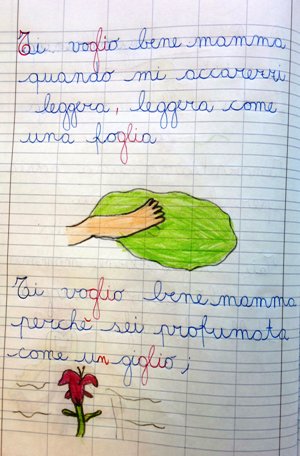 Ti voglio bene mamma
quando mi accarezzi
leggera, leggera come
una foglia
Ti voglio bene mamma
perchè sei profumata
come un giglio;